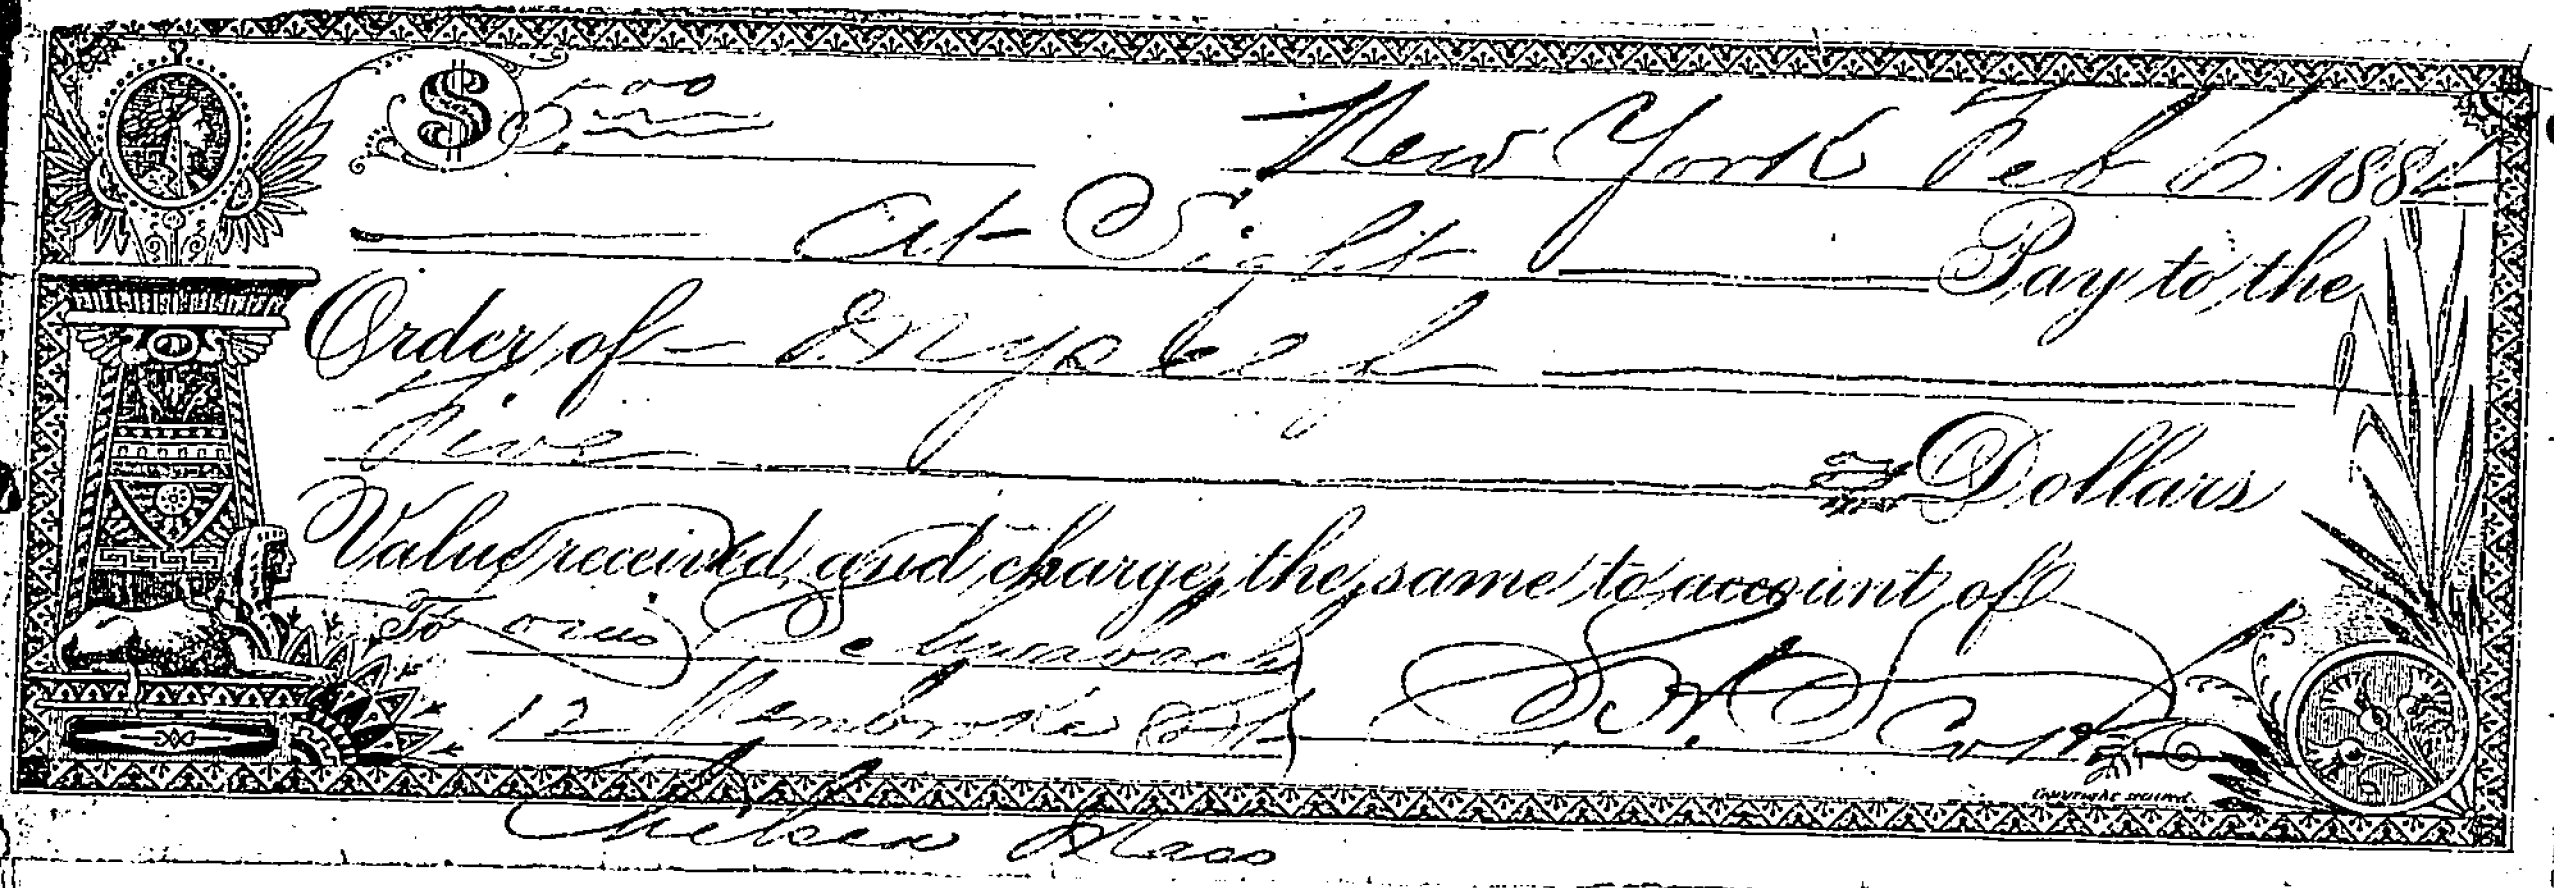 $ 5.00
New York Feb 6 1884
At Sight Pay to the
Order of Myself
Five Dollars
Value received and charge the same to account of
To
12 Pembroke St
Chelsea Mass
Copyright secured